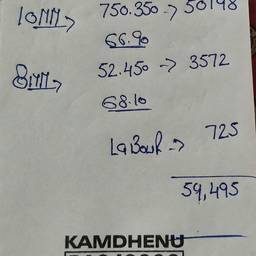 10MM → 750.350 → 50198
66.90
8MM → 52.450 → 3572
68.10
LaBour → 725
59,495
KAMDHENU